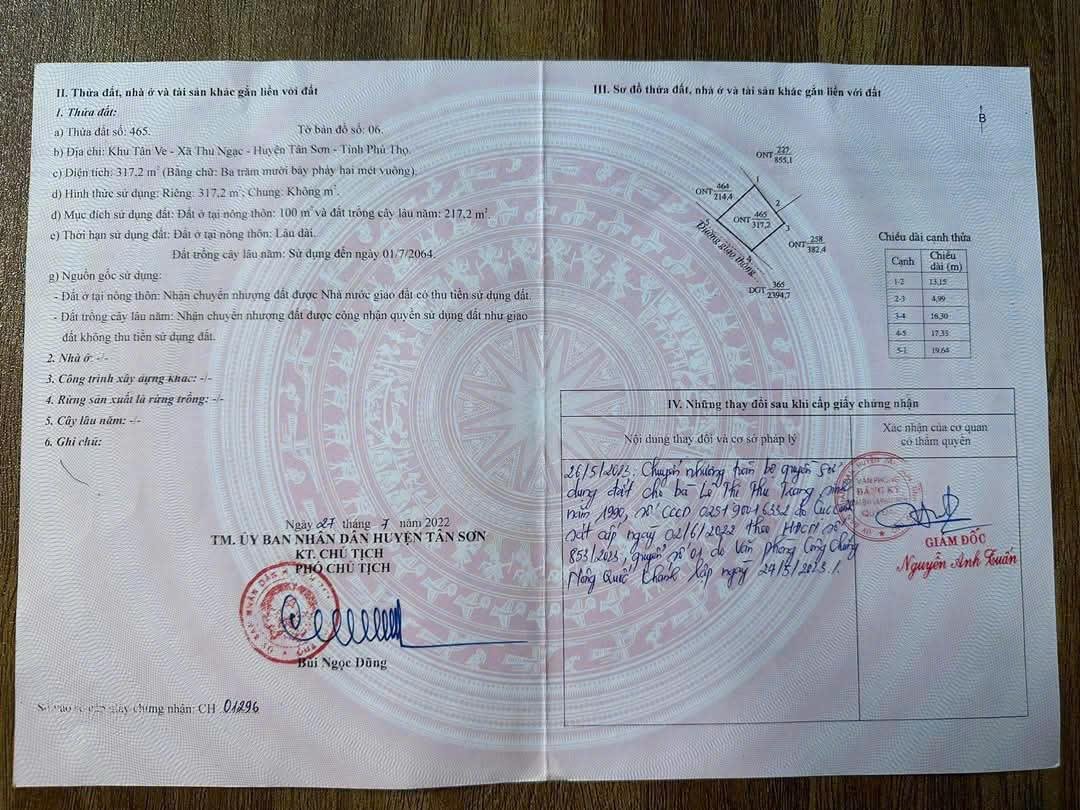 II. Thửa đất, nhà ở và tài sản khác gắn liền với đất
1. Thửa đất:
a) Thửa đất số: 465. Tờ bản đồ số: 06.
b) Địa chỉ: Khu Tân Ve - Xã Thu Ngạc - Huyện Tân Sơn - Tỉnh Phú Thọ.
c) Diện tích: 317,2 m² (Bằng chữ: Ba trăm mười bảy phảy hai mét vuông).
d) Hình thức sử dụng: Riêng: 317,2 m²; Chung: Không m².
đ) Mục đích sử dụng đất: Đất ở tại nông thôn: 100 m² và đất trồng cây lâu năm: 217,2 m².
e) Thời hạn sử dụng đất: Đất ở tại nông thôn: Lâu dài.
Đất trồng cây lâu năm: Sử dụng đến ngày 01/7/2064.
g) Nguồn gốc sử dụng:
- Đất ở tại nông thôn: Nhận chuyển nhượng đất được Nhà nước giao đất có thu tiền sử dụng đất.
- Đất trồng cây lâu năm: Nhận chuyển nhượng đất được công nhận quyền sử dụng đất như giao
đất không thu tiền sử dụng đất.
2. Nhà ở: -/-
3. Công trình xây dựng khác: -/-
4. Rừng sản xuất là rừng trồng: -/-
5. Cây lâu năm: -/-
6. Ghi chú:
Ngày 27 tháng 7 năm 2022
TM. ỦY BAN NHÂN DÂN HUYỆN TÂN SƠN
KT. CHỦ TỊCH
PHÓ CHỦ TỊCH
Bùi Ngọc Dũng
Số vào sổ cấp giấy chứng nhận: CH 01296
III. Sơ đồ thửa đất, nhà ở và tài sản khác gắn liền với đất
B
ONT 227
855,1
ONT 464
214,4
1
2
ONT 465
317,2
3
5
4
ONT 258
382,4
Đường giao thông
DGT 365
2394,7
Chiều dài cạnh thửa
Cạnh Chiều dài (m)
1-2 13,15
2-3 4,99
3-4 16,30
4-5 17,35
5-1 19,64
IV. Những thay đổi sau khi cấp giấy chứng nhận
Nội dung thay đổi và cơ sở pháp lý
Xác nhận của cơ quan
có thẩm quyền
26/5/2023: Chuyển nhượng toàn bộ quyền sử
dụng đất cho bà Lê Thị Thu Trang sinh
năm 1990, số CCCD do Cục
sát cấp ngày 02/6/2022 theo HĐCN số
853/2023, quyển số 01 do Văn phòng Công chứng
Nông Quốc Khánh lập ngày 24/5/2023.
VĂN PHÒNG
ĐĂNG KÝ
GIÁM ĐỐC
Nguyễn Anh Tuấn